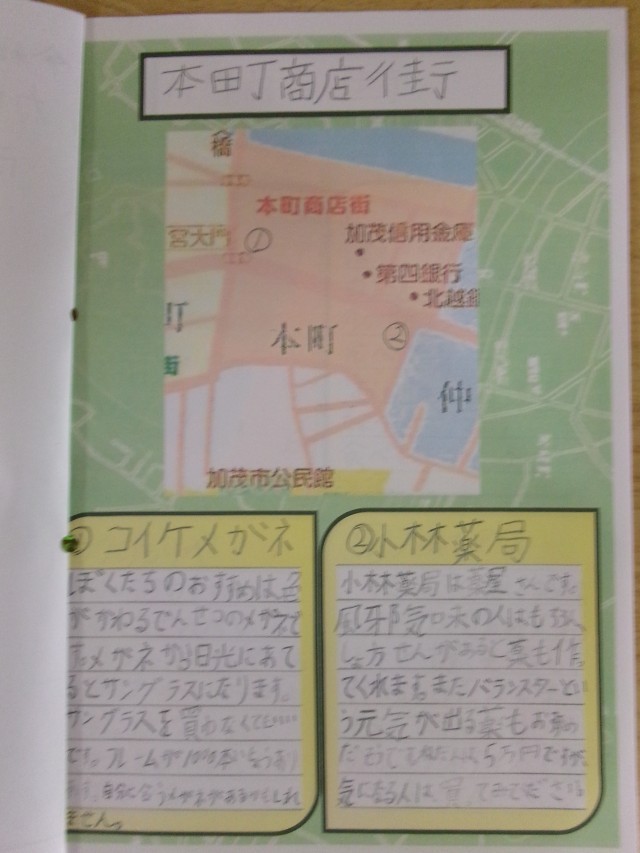 本町商店街
橋
本町商店街
宮大門
①
加茂信用金庫
第四銀行
北越銀
町
本町
②
街
仲
加茂市公民館
① コイケメガネ
ぼくたちのおすすめは色
がかわるでんせつのメガネで
す。メガネから日光にあて
るとサングラスになります。
サングラスを買わなくても……
です。フレームが1000本いじょうあり
ます。自分に合うメガネがあるかもしれ
ません。
②小林薬局
小林薬局は薬屋さんです。
風邪気味の人はもちろん、
しょ方せんがあると薬も作っ
てくれます。またバランスターとい
う元気が出る薬もお勧め
だそうです。ねだんは5万円ですが
気になる人は買ってみてください。